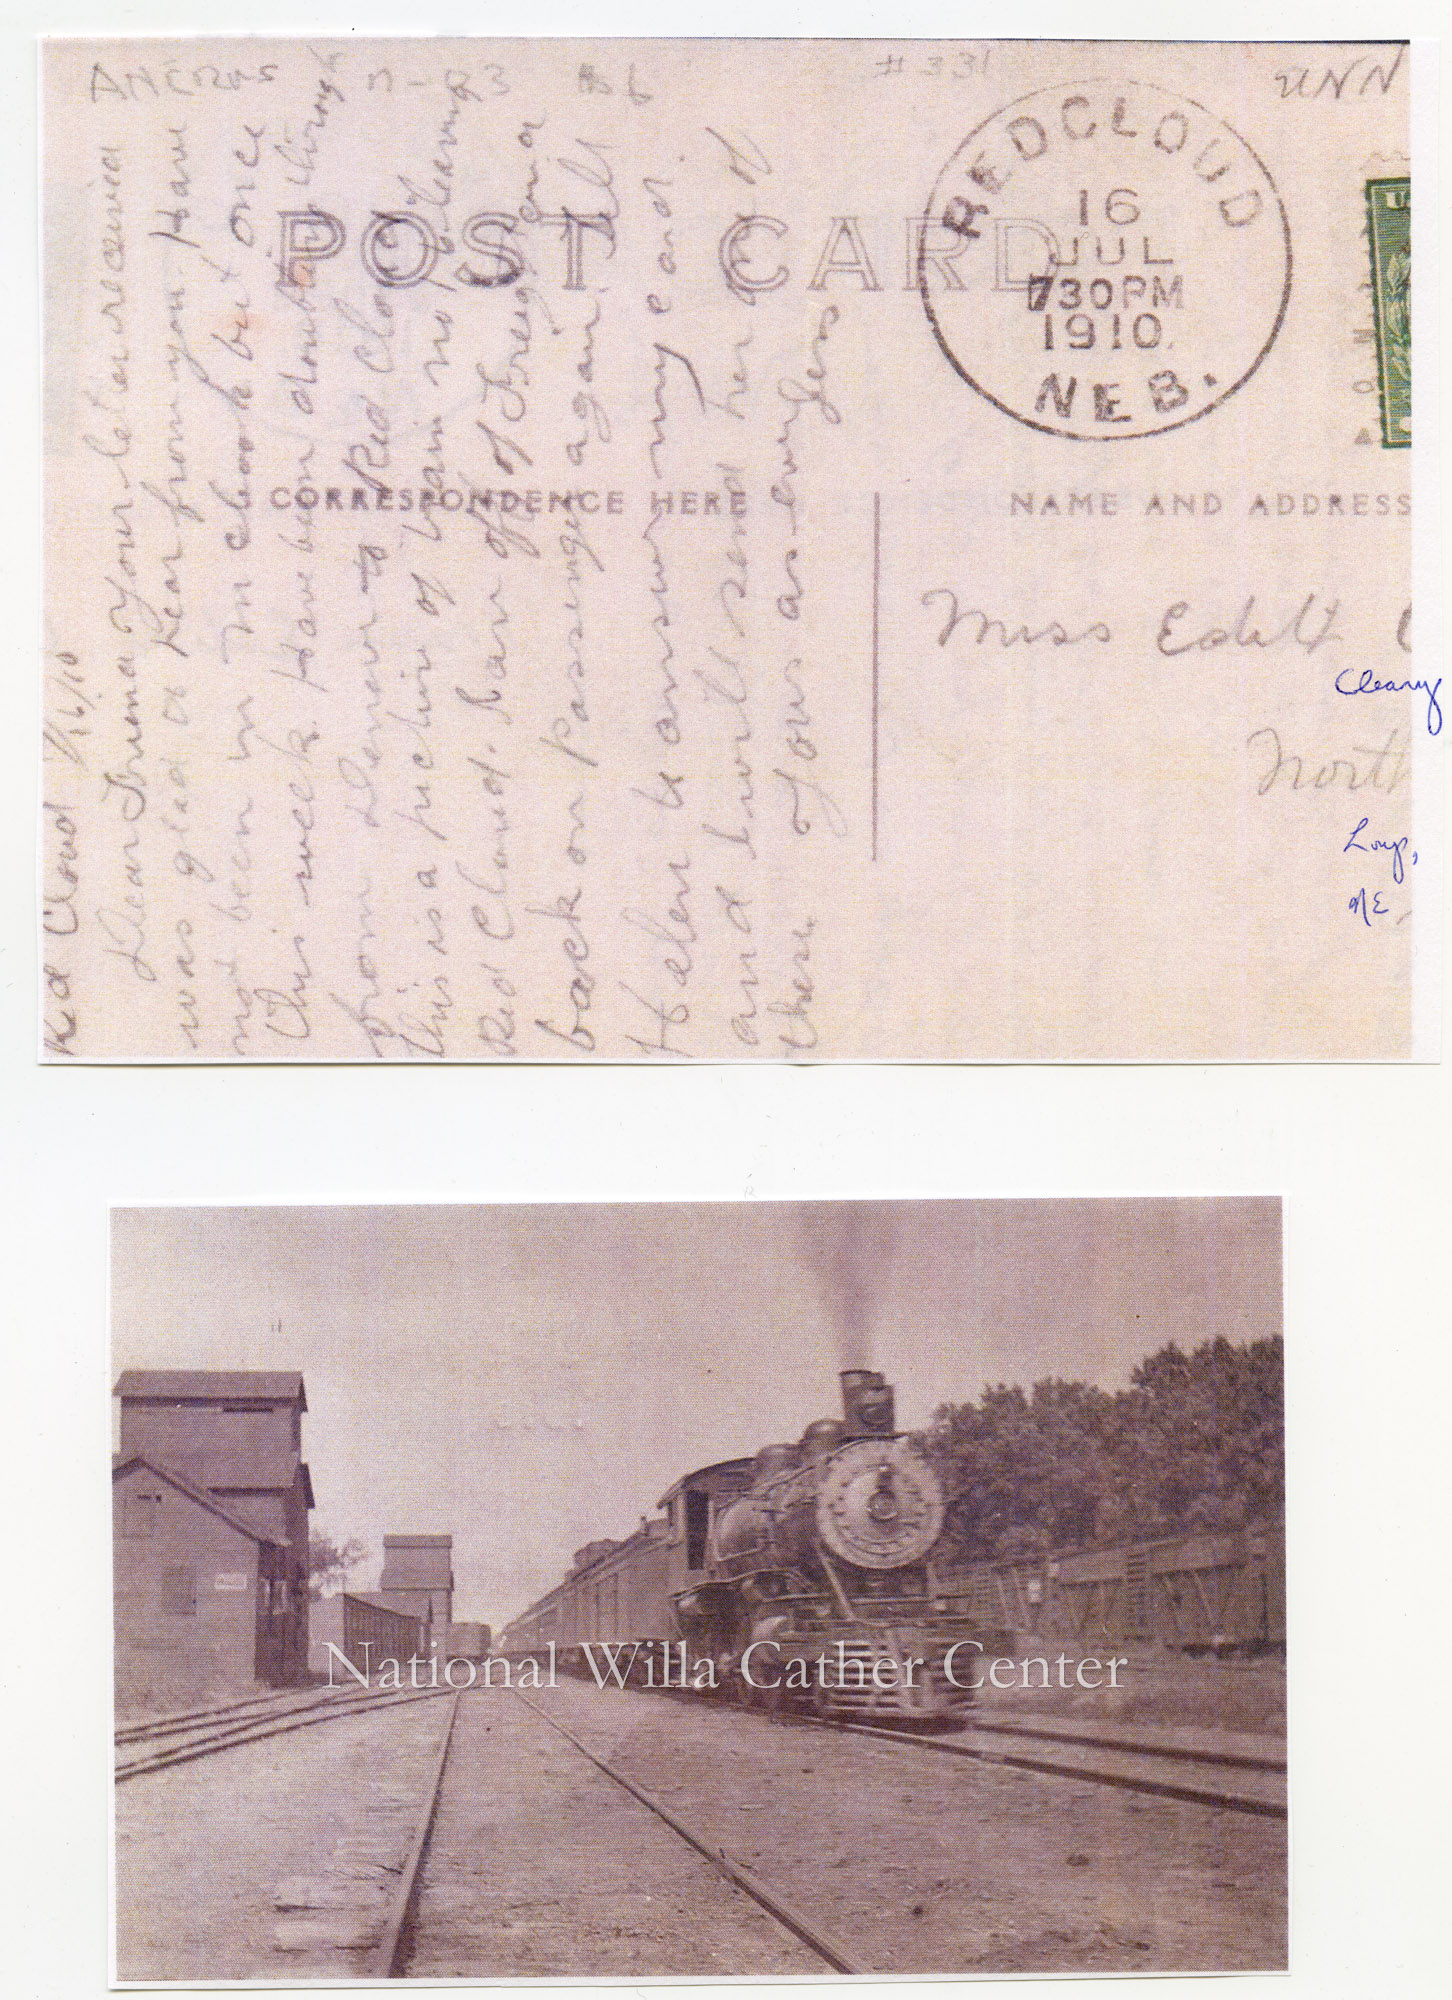 #331
UNN
POST CARD
REDCLOUD
16
JUL
730PM
1910.
NEB.
CORRESPONDENCE HERE
NAME AND ADDRESS
Red Cloud 7/16/10
Dear Friend Your letter received
was glad to hear from you. Have
not been in McCook but once
this week. Have been doubtain through
from Denver to Red Cloud
this is a picture of train no 16 leaving
Red Cloud. I am off of Freight and
back on Passenger again. Tell
Helen to answer my card.
and I will send her one of
these. Yours as ever Jess
Miss Edith C
Cleary
North
Loup,
NE.
National Willa Cather Center